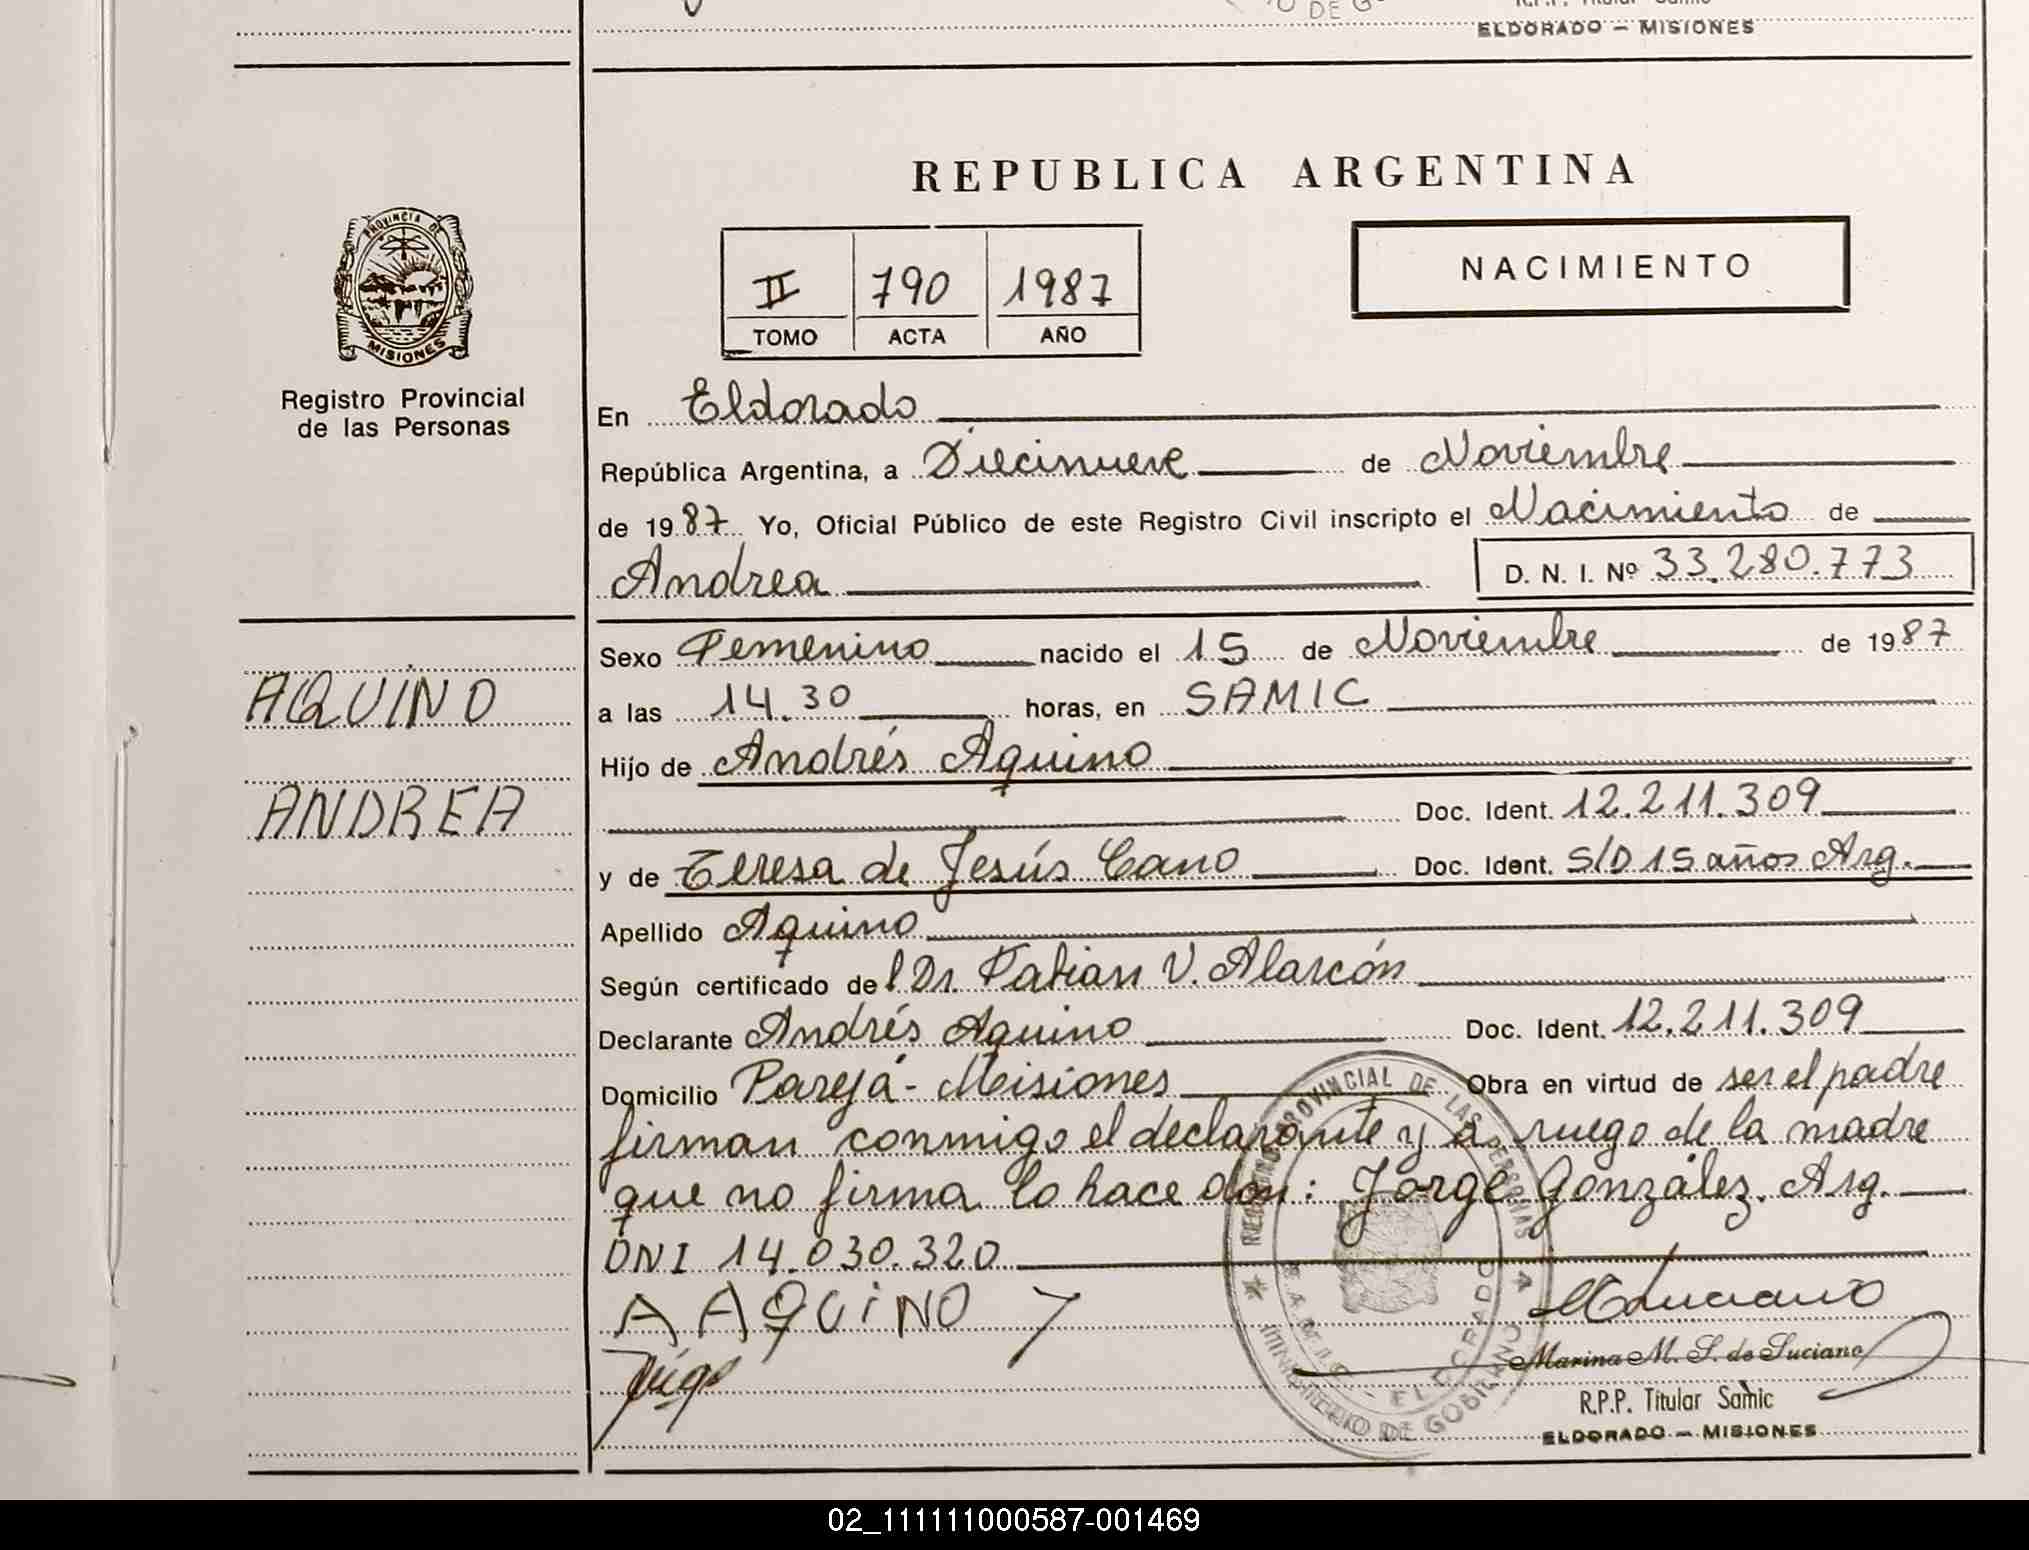 ELDORADO — MISIONES
REPUBLICA ARGENTINA
PROVINCIA DE
MISIONES
Registro Provincial
de las Personas
II 790 1987
TOMO ACTA AÑO
NACIMIENTO
En Eldorado
República Argentina, a Diecinueve de Noviembre
de 1987 Yo, Oficial Público de este Registro Civil inscripto el Nacimiento de
Andrea D. N. I. Nº 33.280.773
AQUINO
ANDREA
Sexo Femenino nacido el 15 de Noviembre de 1987
a las 14.30 horas, en SAMIC
Hijo de Andrés Aquino
Doc. Ident. 12.211.309
y de Teresa de Jesús Cano Doc. Ident. S/D 15 años Arg.
Apellido Aquino
Según certificado del Dr. Fabian V. Alarcón
Declarante Andrés Aquino Doc. Ident. 12.211.309
Domicilio Parejá - Misiones Obra en virtud de ser el padre
firman conmigo el declarante y a ruego de la madre
que no firma lo hace don: Jorge González. Arg.
DNI 14.030.320
A AQUiNO
REGISTRO PROVINCIAL DE LAS PERSONAS
MINISTERIO DE GOBIERNO
ELDORADO
Marina M. S. de Luciano
R.P.P. Titular Samic
ELDORADO — MISIONES
02_111111000587-001469